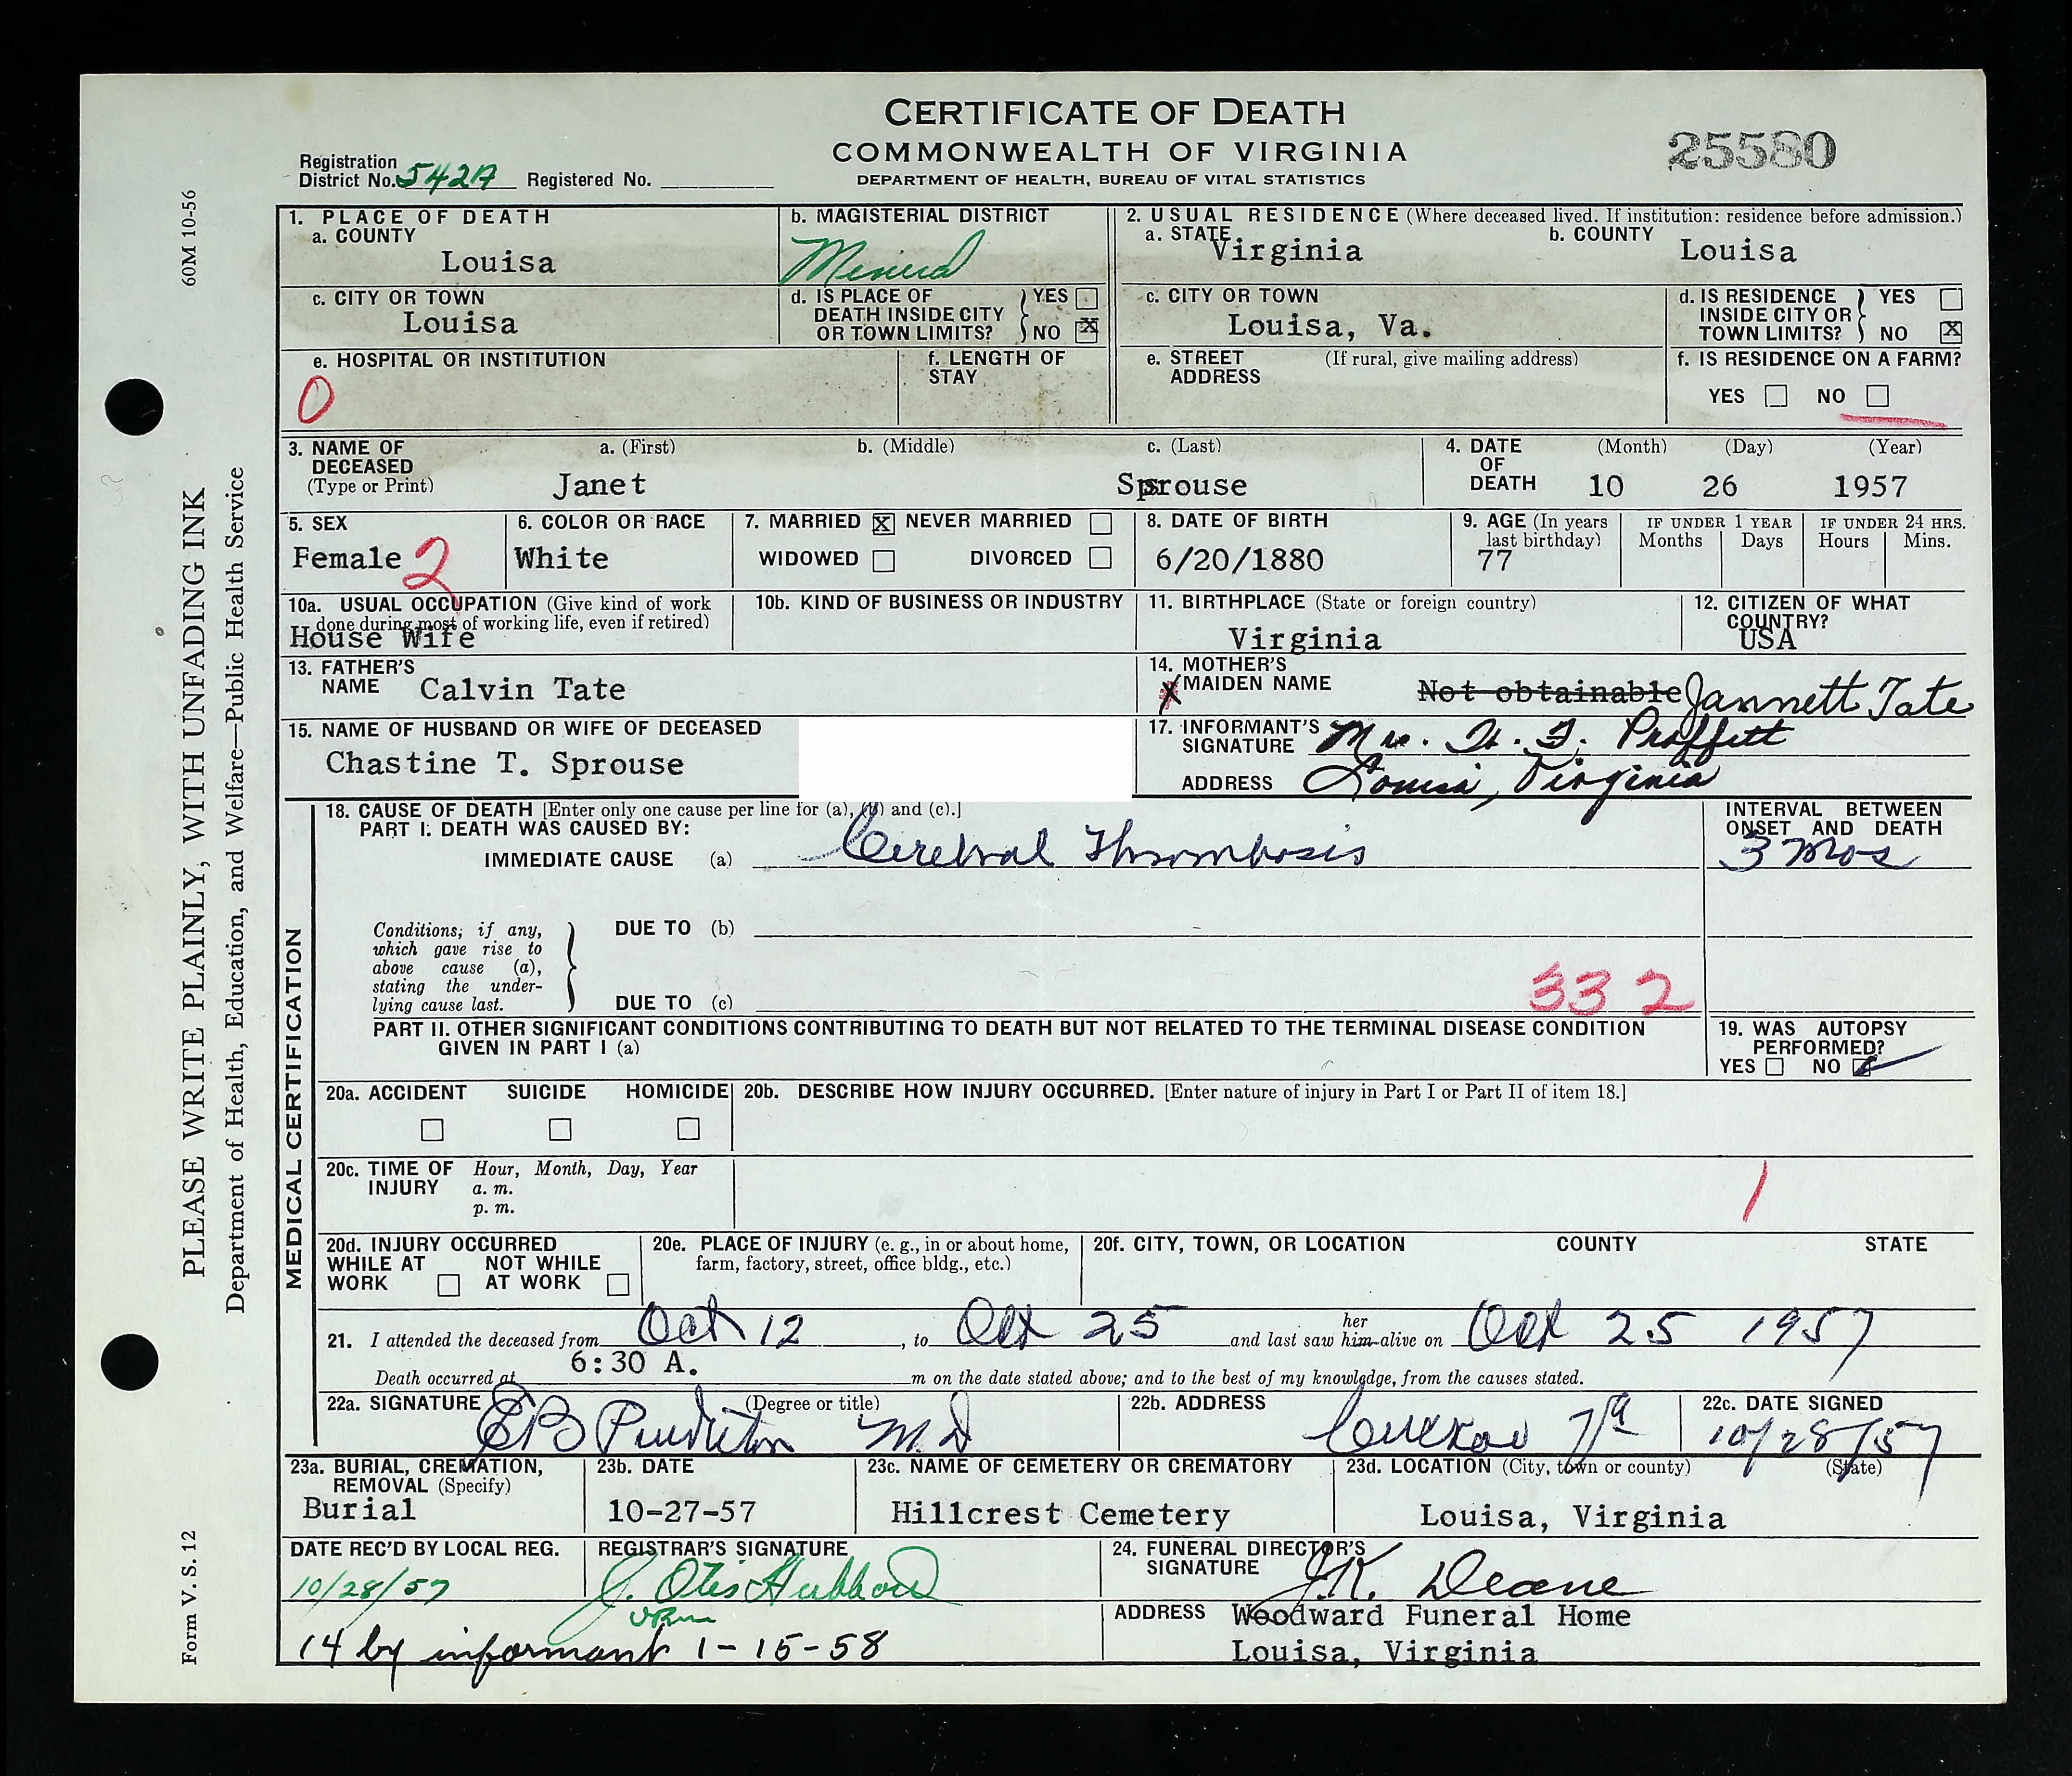 CERTIFICATE OF DEATH
COMMONWEALTH OF VIRGINIA
DEPARTMENT OF HEALTH, BUREAU OF VITAL STATISTICS
25580
Registration
District No. 542A Registered No.
60M 10-56
PLEASE WRITE PLAINLY, WITH UNFADING INK
Department of Health, Education, and Welfare—Public Health Service
Form V. S. 12
1. PLACE OF DEATH
a. COUNTY
Louisa
b. MAGISTERIAL DISTRICT
Mineral
2. USUAL RESIDENCE (Where deceased lived. If institution: residence before admission.)
a. STATE Virginia
b. COUNTY Louisa
c. CITY OR TOWN
Louisa
d. IS PLACE OF DEATH INSIDE CITY OR TOWN LIMITS? YES NO X
c. CITY OR TOWN
Louisa, Va.
d. IS RESIDENCE INSIDE CITY OR TOWN LIMITS? YES NO X
e. HOSPITAL OR INSTITUTION
0
f. LENGTH OF STAY
e. STREET ADDRESS (If rural, give mailing address)
f. IS RESIDENCE ON A FARM?
YES NO
3. NAME OF DECEASED (Type or Print)
a. (First) b. (Middle) c. (Last)
Janet Sprouse
4. DATE OF DEATH (Month) (Day) (Year)
10 26 1957
5. SEX
Female 2
6. COLOR OR RACE
White
7. MARRIED X NEVER MARRIED
WIDOWED DIVORCED
8. DATE OF BIRTH
6/20/1880
9. AGE (In years last birthday)
77
IF UNDER 1 YEAR
Months Days
IF UNDER 24 HRS.
Hours Mins.
10a. USUAL OCCUPATION (Give kind of work done during most of working life, even if retired)
House Wife
10b. KIND OF BUSINESS OR INDUSTRY
11. BIRTHPLACE (State or foreign country)
Virginia
12. CITIZEN OF WHAT COUNTRY?
USA
13. FATHER'S NAME Calvin Tate
14. MOTHER'S MAIDEN NAME
X Not obtainable Jannett Tate
15. NAME OF HUSBAND OR WIFE OF DECEASED
Chastine T. Sprouse
17. INFORMANT'S SIGNATURE Mrs. Proffett
ADDRESS Louisa, Virginia
MEDICAL CERTIFICATION
18. CAUSE OF DEATH [Enter only one cause per line for (a), (b) and (c).]
PART I. DEATH WAS CAUSED BY:
IMMEDIATE CAUSE (a) Cerebral Thrombosis
INTERVAL BETWEEN ONSET AND DEATH
3 mos
Conditions, if any, which gave rise to above cause (a), stating the underlying cause last.
DUE TO (b)
DUE TO (c)
332
PART II. OTHER SIGNIFICANT CONDITIONS CONTRIBUTING TO DEATH BUT NOT RELATED TO THE TERMINAL DISEASE CONDITION
GIVEN IN PART I (a)
19. WAS AUTOPSY PERFORMED?
YES NO
20a. ACCIDENT SUICIDE HOMICIDE
20b. DESCRIBE HOW INJURY OCCURRED. [Enter nature of injury in Part I or Part II of item 18.]
20c. TIME OF INJURY Hour, Month, Day, Year
a. m.
p. m.
1
20d. INJURY OCCURRED
WHILE AT WORK NOT WHILE AT WORK
20e. PLACE OF INJURY (e. g., in or about home, farm, factory, street, office bldg., etc.)
20f. CITY, TOWN, OR LOCATION COUNTY STATE
21. I attended the deceased from Oct 12, to Oct 25 and last saw him her alive on Oct 25 1957
Death occurred at 6:30 A. m on the date stated above; and to the best of my knowledge, from the causes stated.
22a. SIGNATURE (Degree or title)
EB Pendleton M.D
22b. ADDRESS
Cuckoo Va
22c. DATE SIGNED
10/28/57
23a. BURIAL, CREMATION, REMOVAL (Specify)
Burial
23b. DATE
10-27-57
23c. NAME OF CEMETERY OR CREMATORY
Hillcrest Cemetery
23d. LOCATION (City, town or county) (State)
Louisa, Virginia
DATE REC'D BY LOCAL REG.
10/28/57
REGISTRAR'S SIGNATURE
J. Otis Hubbard
24. FUNERAL DIRECTOR'S SIGNATURE
J.K. Deane
ADDRESS Woodward Funeral Home
Louisa, Virginia
14 by informant 1-15-58